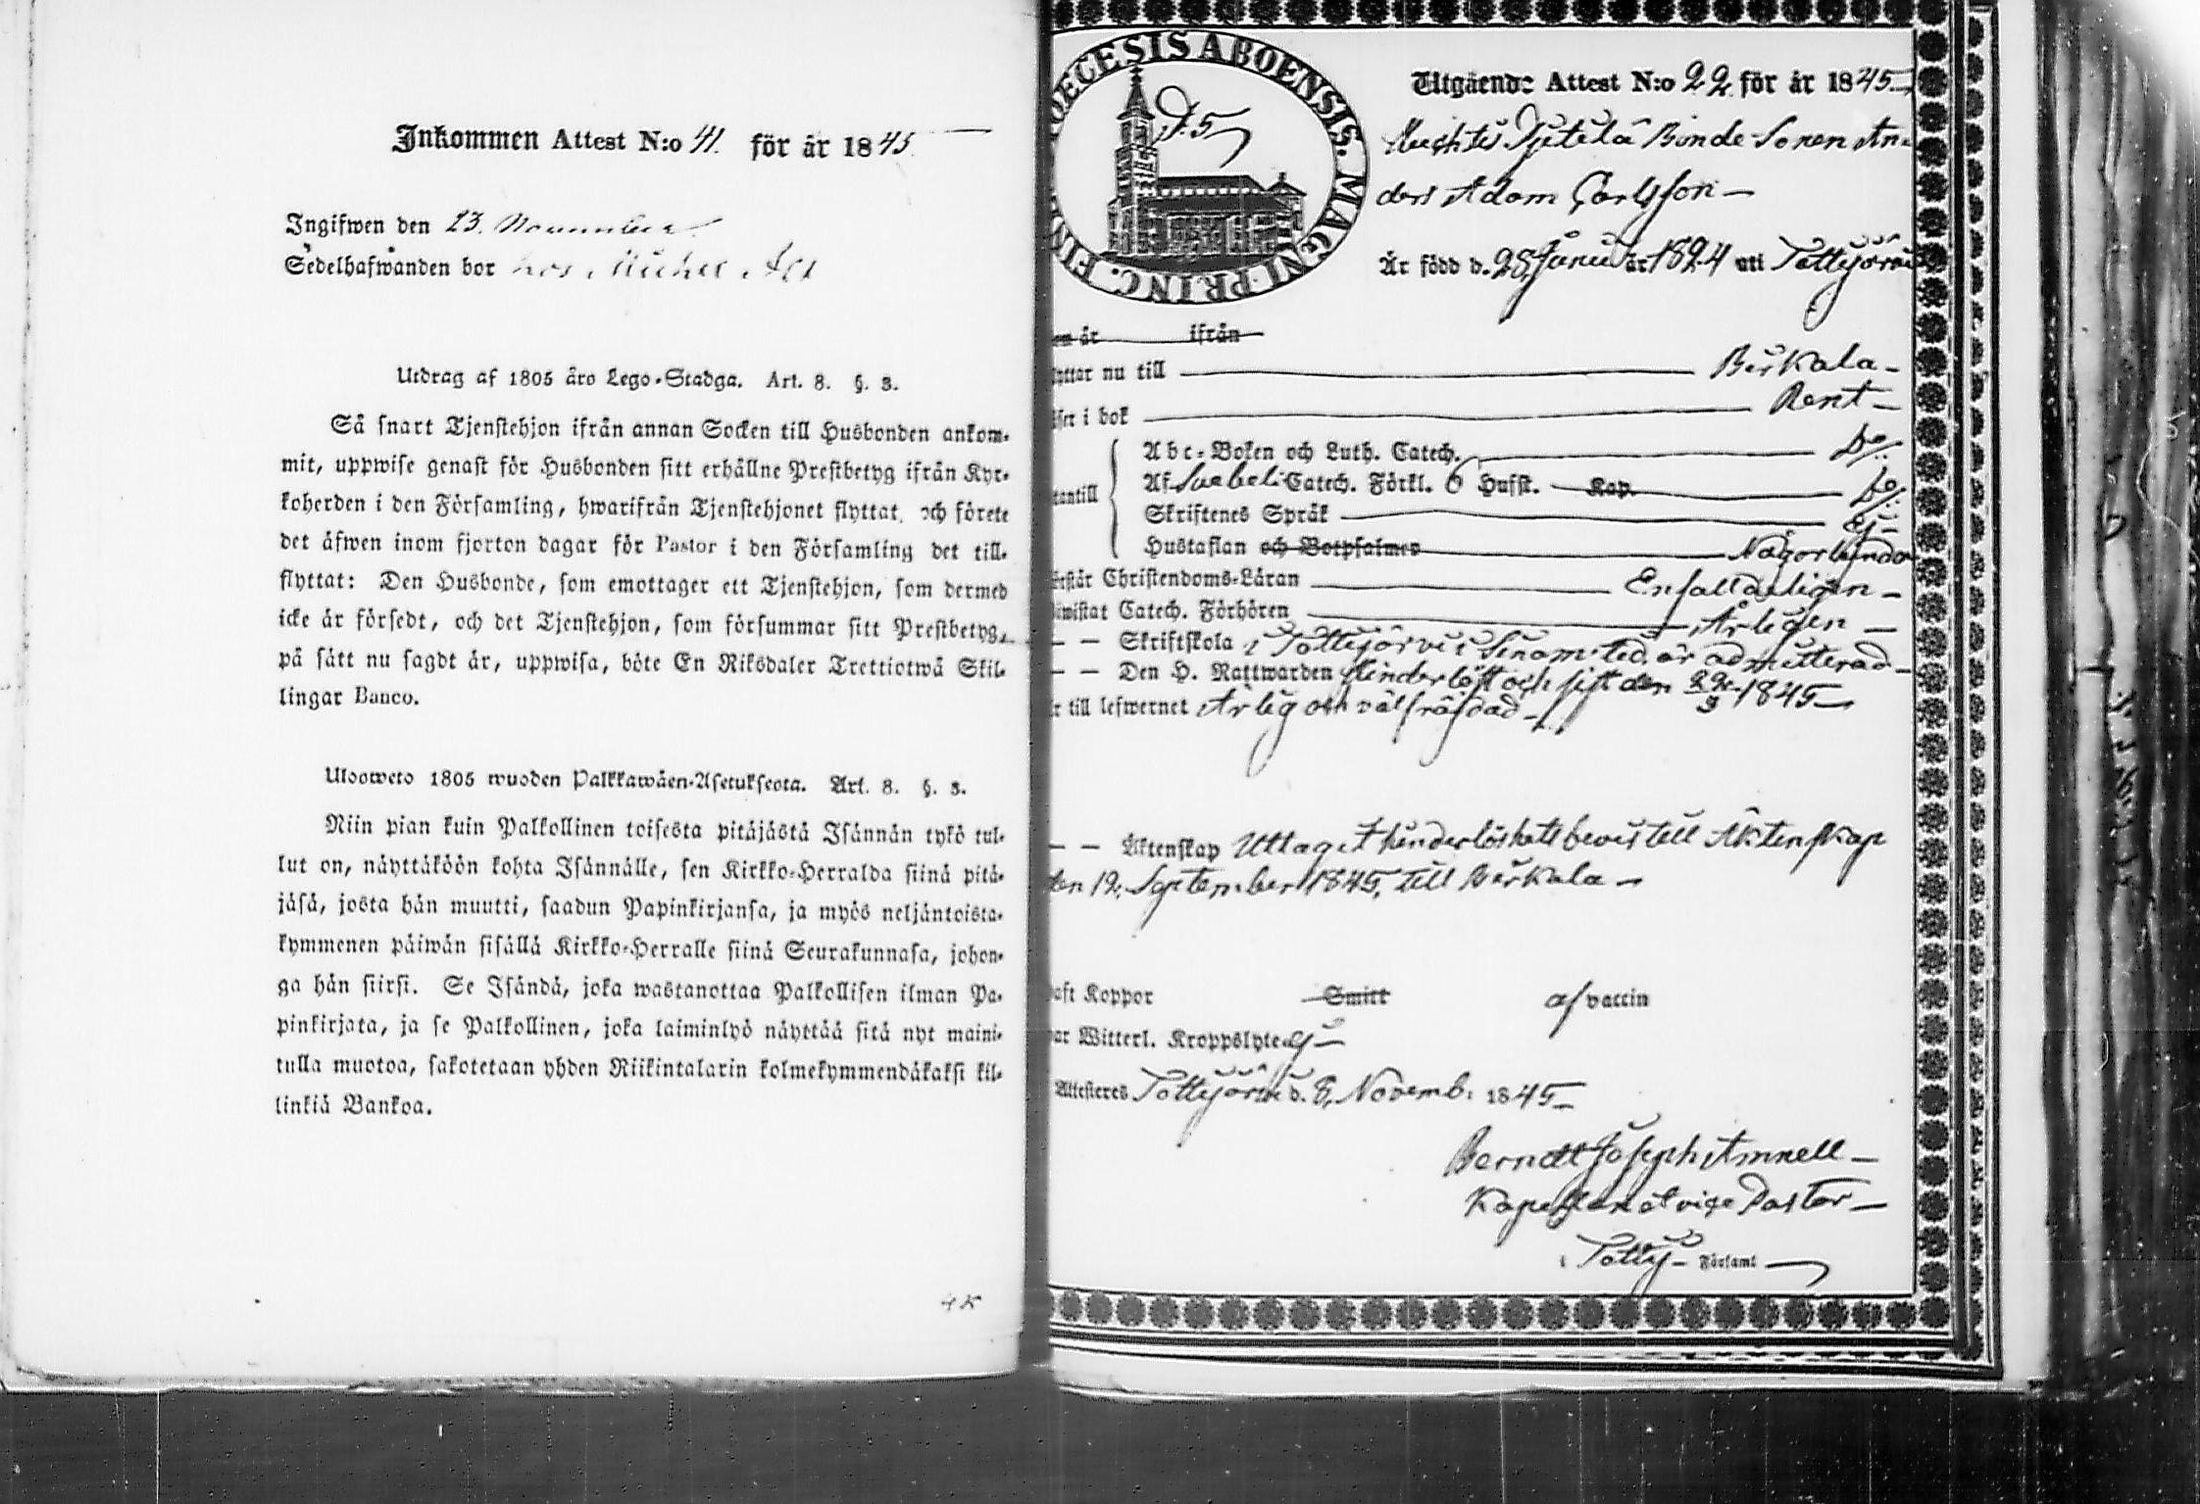 Inkommen Attest N:o 41. för år 1845
Ingifwen den 23. November
Sedelhafwanden bor hos Michel
Utdrag af 1805 års Lego-Stadga. Art. 8. §. 3.
Så snart Tjenstehjon ifrån annan Socken till Husbonden ankom-
mit, uppwise genast för Husbonden sitt erhållne Prestbetyg ifrån Kyr-
koherden i den Församling, hwarifrån Tjenstehjonet flyttat, och förete
det äfwen inom fjorton dagar för Pastor i den Församling det till-
flyttat: Den Husbonde, som emottager ett Tjenstehjon, som dermed
icke är försedt, och det Tjenstehjon, som försummar sitt Prestbetyg,
på sätt nu sagdt är, uppwisa, böte En Riksdaler Trettiotwå Skil-
lingar Banco.
Ulosweto 1805 wuoden Palkkawäen-Asetuksesta. Art. 8. §. 3.
Niin pian kuin Palkollinen toisesta pitäjästä Isännän tykö tul-
lut on, näyttäköön kohta Isännälle, sen Kirkko-Herralda siinä pitä-
jäsä, josta hän muutti, saadun Papinkirjansa, ja myös neljäntoista-
kymmenen päiwän sisällä Kirkko-Herralle siinä Seurakunnasa, johon-
ga hän siirsi. Se Isändä, joka wastanottaa Palkollisen ilman Pa-
pinkirjata, ja se Palkollinen, joka laiminlyö näyttää sitä nyt maini-
tulla muotoa, sakotetaan yhden Riikintalarin kolmekymmendäkaksi kil-
linkiä Bankoa.
DIOECESIS ABOENSIS. MAGNI PRINC.
Utgående Attest N:o 22. för år 1845
Bonde Sonen An-
ders Adam Carlsson
Är född d. 28 Junii år 1824 uti Tottijärvi
år ifrån
nu till Birkala
i bok Rent
Abc-Boken och Luth. Catech. Do
Af Svebeli Catech. Förkl. 6 Hufst. Kap. Do
Skriftenes Språk Ej
Hustaflan och Botpsalmer Någorlunda
Christendoms-Läran Enfalldeligen
Catech. Förhören Årligen
— — Skriftskola i Tottijärvi i sinom tid, är admitterad
— — Den H. Nattwarden hinderlöst och sist den 22/3 1845
till lefwernet Ärlig och välfräjdad
— — Äktenskap Uttaget hinderlöshets bevis till Äktenskap
den 19. September 1845, till Birkala
Koppor Smitt af vaccin
Witterl. Kroppslyte ej
Attesteres Tottijärvi d. 8. Novemb. 1845
Berndt Joseph Amnell
Kapellan at vice Pastor
i Tottij. Församl